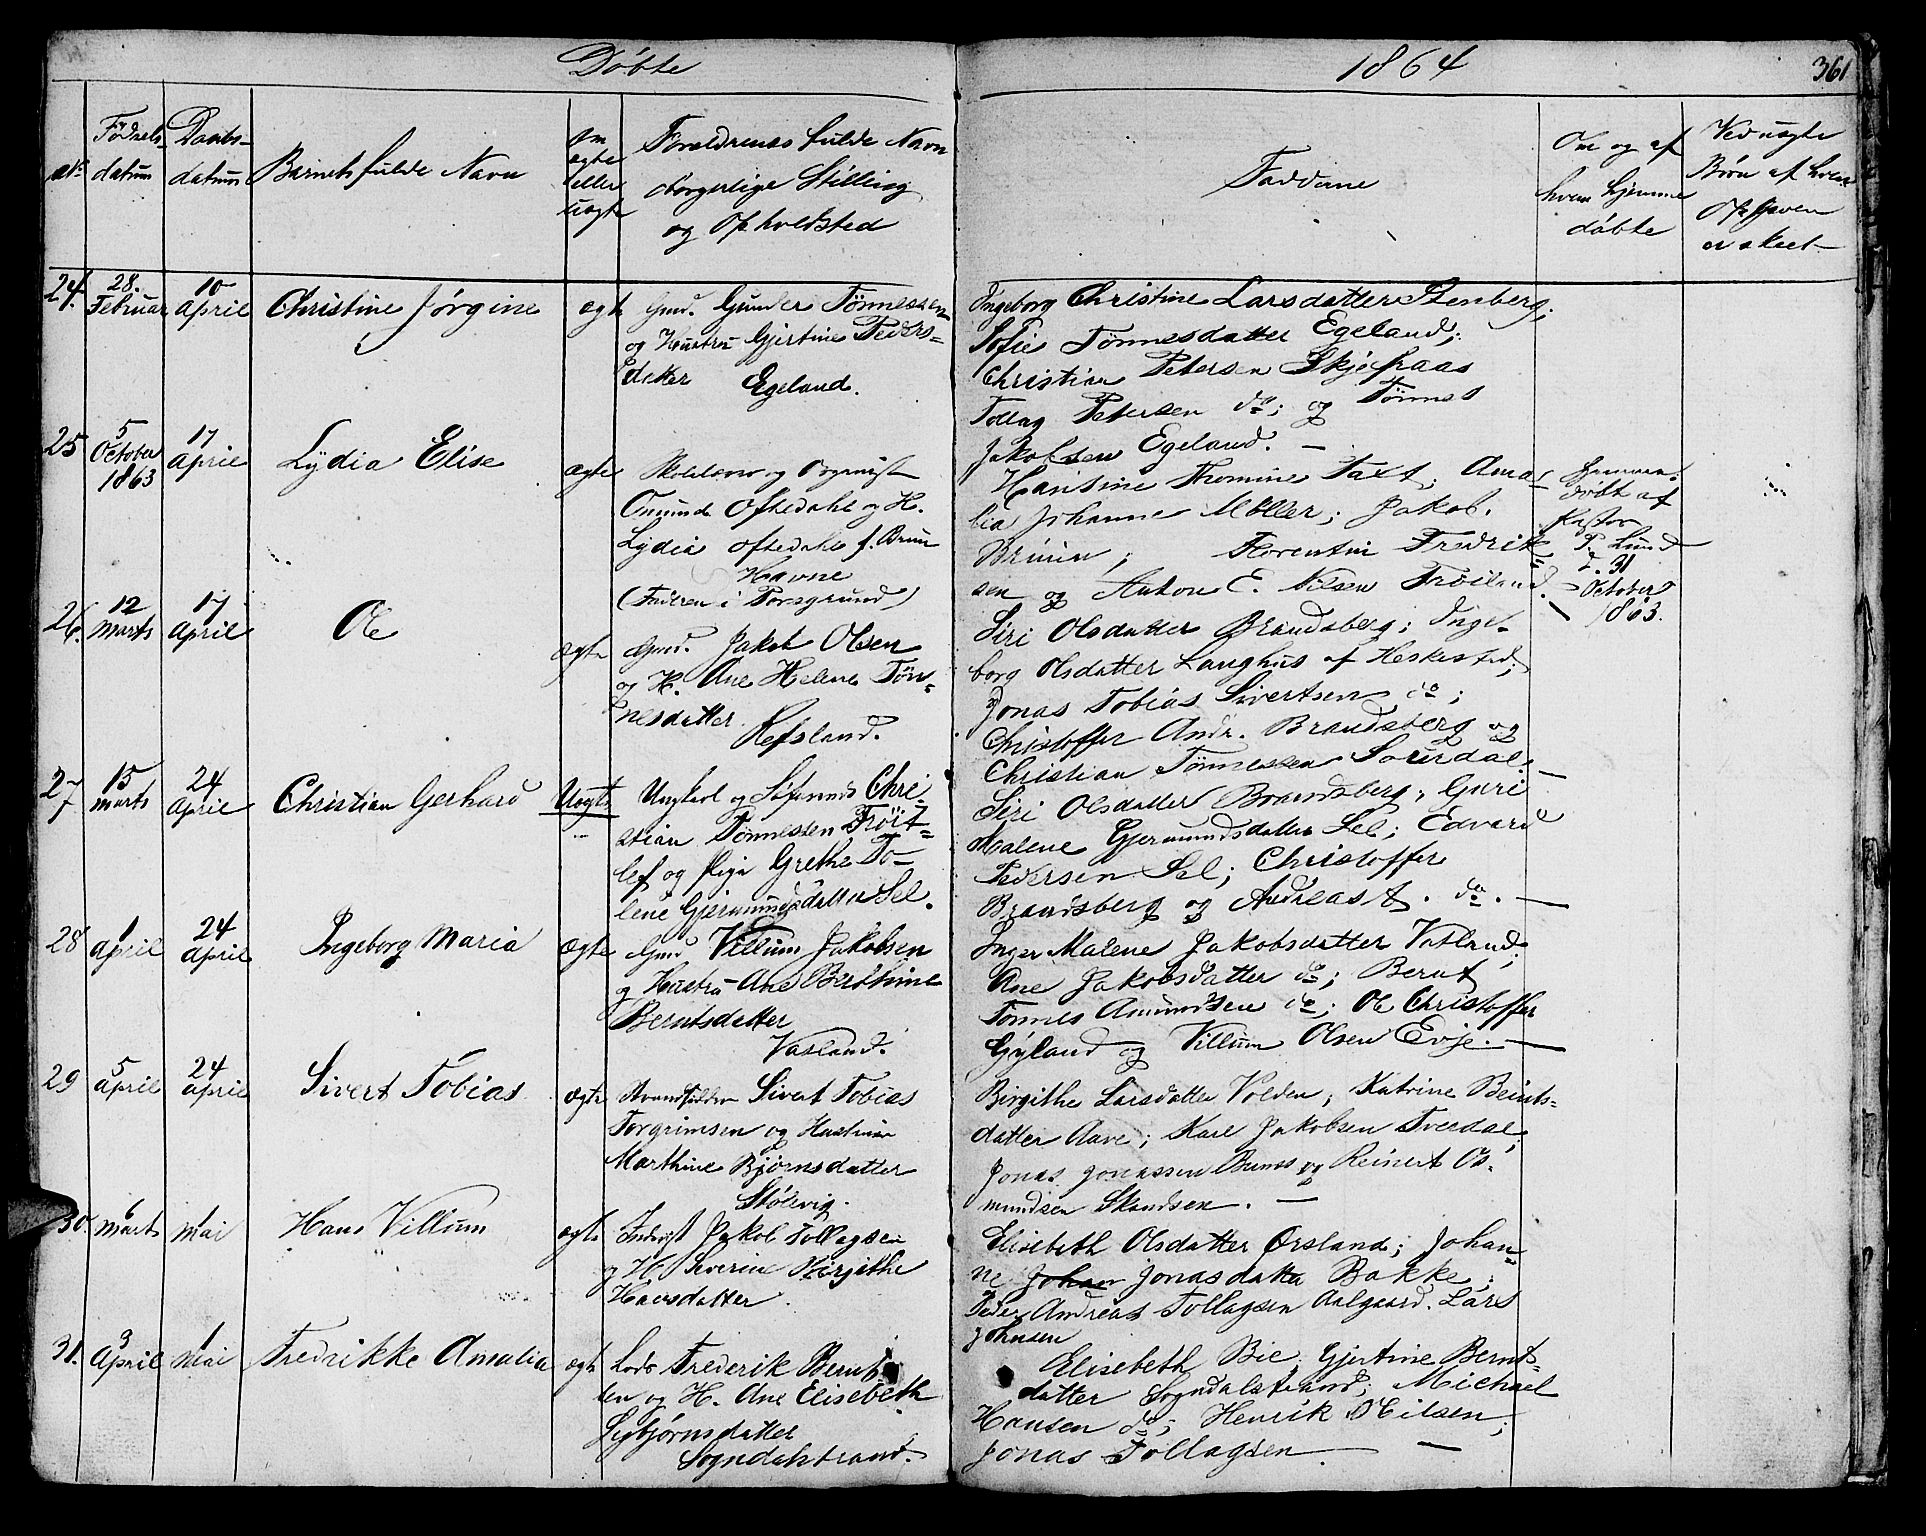 Döbte
1864
361
No
Fødsels-
datum
Daabs-
datum
Barnets fulde Navn
Om
ægte
eller
uægte
Forældrenes fulde Navn
borgerlige Stilling
og Opholdssted
Faddere
Om og af
hvem hjemme
døbte
Ved uægte
Börn af hvem
Opgaven
er skeet
24. 28. Februar 10 April Christine Jörgine ægte
Gmd. Gunder Tönnessen
og Hustru Gjertine Peders=
datter Egeland.
Ingeborg Christine Larsdatter Stenberg;
Sofie Tönnesdatter Egeland;
Christian Petersen Skjefraas
Tollag Petersen do; og Tönnes
Jakobsen Egeland. —
25 5 October 1863 17 April Lydia Elise ægte
Skolelærer og Organist
Omund Oftedahl og H.
Lydia Oftedahl f. Bruun
Havne
(Faderen i Porsgrund)
Hansine Thomine Taxt; Ama-
lia Johanne Möller; Jakob
Bruun; Florentin Fredrik=
sen og Anton E. Nilsen Tröiland. —
Hjemme-
döbt af
Pastor
P. Lund
d. 31
October
1863.
26. 12 Marts 17 April Ole ægte
Gmd. Jakob Olsen
og H. Ane Helene Tön=
nesdatter. Refsland.
Siri Olsdatter Brandsberg; Inge-
borg Olsdatter Langhus af Heskestad;
Jonas Tobias Sivertsen do;
Christoffer Andr. Brandsberg og
Christian Tönnessen Sourdal —
27 15 Marts 24 April Christian Gerhard Uægte
Ungkarl og Sø Chri-
stian Tönnessen Fröit=
lef og Pige Grethe To-
lene Gjermundsdatter Sel.
Siri Olsdatter Brandsberg; Guri
Malene Gjermundsdatter Sel; Edvard
Pedersen Sel; Christoffer
Brandsberg og Andreas A. do. —
28 1 April 24 April Ingeborg Maria ægte
Gmd Villum Jakobsen
og Hustru Ane Berthine
Berntsdatter
Vatland.
Inger Malene Jakobsdatter Vatland;
Ane Jakobsdatter do; Bernt
Tönnes Amundsen do; Ole Christoffer
Gyland og Villum Olsen Evje. —
29 5 April 24 April Sivert Tobias ægte
Strandsidder Sivert Tobias
Torgrimsen og Hustru
Marthine Bjørnsdatter
Stölevig.
Birgithe Larsdatter Volden; Katrine Bernts=
datter Aave; Karl Jakobsen Tveedal;
Jonas Jonassen Buns og Reinert Os-
mundsen Skandsen. —
30. 6 Marts 1 Mai Hans Villum ægte
Inderst Jakob Tollagsen
og H. Severine Birgithe
Hansdatter.
Elisebeth Olsdatter Örsland; Johan=
ne Johan Jonasdatter Bakke;
Peder Andreas Tollagsen Aalgaard. Lars
Johnsen
31. 3 April 1 Mai Fredrikke Amalia ægte
Lods Frederik Bernt-
sen og H. Ane Elisebeth
Sigbjörnsdatter
Sogndalstrand.
Elisebeth Bie, Gjertine Bernts=
datter Sogndalstrand; Michael
Hansen do; Henrik Nilsen;
Jonas Tollagsen. —